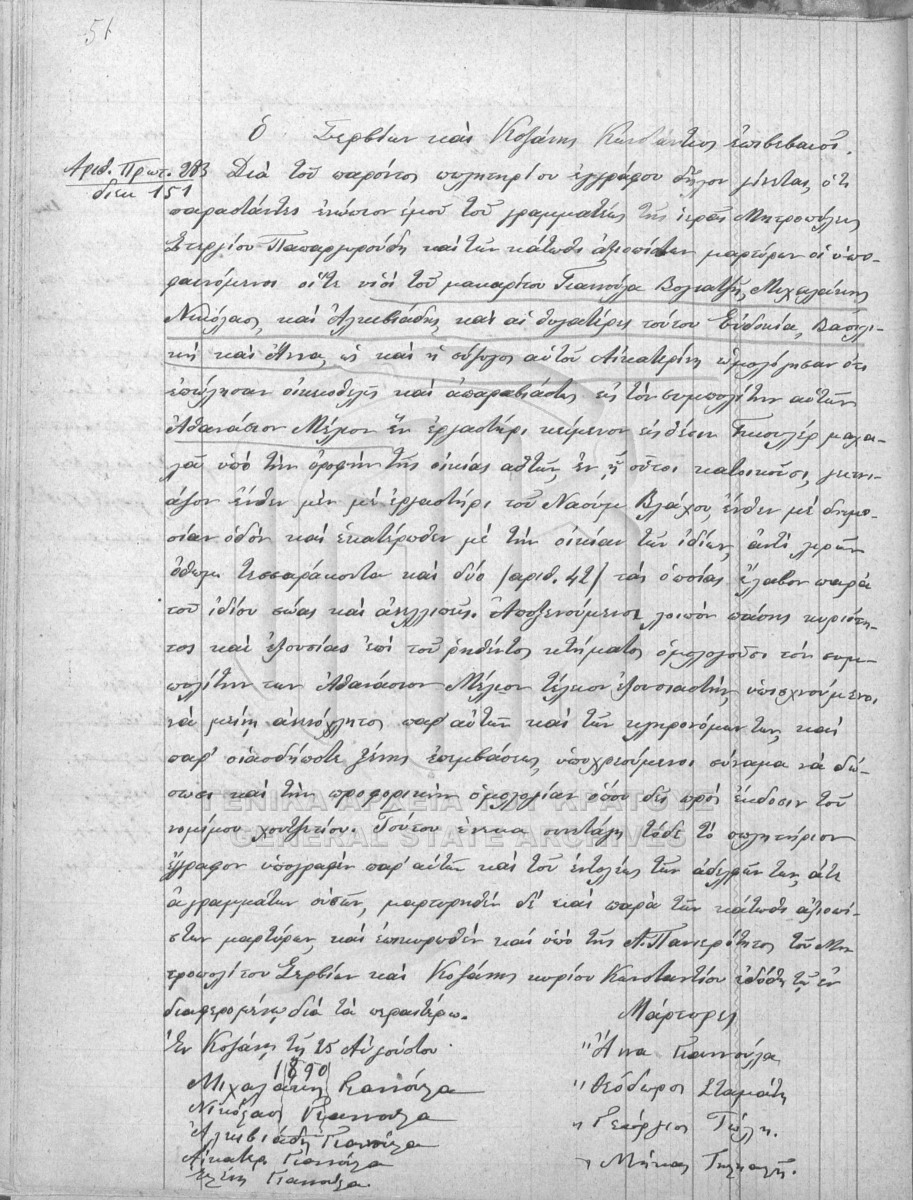 51
Ὁ Σερβίων καὶ Κοζάνης Κωνστάντιος ἐπιβεβαιοῖ.
Ἀριθ. Πρωτ. 283
διεκ 151
Διὰ τοῦ παρόντος πωλητηρίου ἐγγράφου δῆλον γίνεται, ὅτι
παραστάντες ἐνώπιον ἐμοῦ τοῦ γραμματέως τῆς ἱερᾶς Μητροπόλεως
Στεργίου Παπαργυρούδη καὶ τῶν κάτωθι ἀξιοπίστων μαρτύρων οἱ ὑπο-
φαινόμενοι οἵτε υἱοὶ τοῦ μακαρίτου Γιαννούλα Βογιατζῆ, Μιχαλάκης,
Νικόλαος, καὶ Ἀλκιβιάδης, καὶ αἱ θυγατέρες τούτου Εὐδοκία, Βασιλι-
κὴ καὶ Ἄννα, ὡς καὶ ἡ σύζυγος αὐτοῦ Αἰκατερίνη ὡμολόγησαν ὅτι
ἐπώλησαν οἰκειοθελῶς καὶ ἀπαραβιάστως εἰς τὸν συμπολίτην αὐτῶν
Ἀθανάσιον Μέλιον ἓν ἐργαστήρι κείμενον εἰς θέσιν μαχα-
λᾶ ὑπὸ τὴν ὀροφὴν τῆς οἰκίας αὐτῶν, ἐν ᾗ οὗτοι κατοικοῦσι, γειτνι-
άζον ἔνθεν μὲν μὲ ἐργαστήρι τοῦ Ναοὺμ Βλάχου, ἔνθεν μὲ δημο-
σίαν ὁδὸν καὶ ἑκατέρωθεν μὲ τὴν οἰκίαν τῶν ἰδίων, ἀντὶ λιρῶν
ὀθωμ. τεσσαράκοντα καὶ δύο /ἀριθ. 42/ τὰς ὁποίας ἔλαβον παρὰ
τοῦ ἰδίου σώας καὶ ἀνελλιπεῖς. Ἀποξενούμενοι λοιπὸν πάσης κυριότη-
τος καὶ ἐξουσίας ἐπὶ τοῦ ῥηθέντος κτήματος ὁμολογοῦσι τὸν συμ-
πολίτην των Ἀθανάσιον Μέλιον τέλειον ἐξουσιαστήν, ὑπισχνούμενοι
νὰ μείνῃ ἀνενόχλητος παρ' αὐτῶν καὶ τῶν κληρονόμων των, καὶ
παρ' οἱασδήποτε ξένης ἐπεμβάσεως, ὑποχρεούμενοι σύναμα νὰ δώ-
σωσι καὶ τὴν προφορικὴν ὁμολογίαν ὅπου δεῖ πρὸς ἔκδοσιν τοῦ
νομίμου χοντζετίου. Τούτου ἕνεκα συνετάγη τόδε τὸ πωλητήριον
ἔγγραφον ὑπογραφὲν παρ' αὐτῶν καὶ τοῦ ἐντολέως τῶν ἀδελφῶν των, ἅτε
ἀγραμμάτων οὐσῶν, μαρτυρηθὲν δὲ καὶ παρὰ τῶν κάτωθι ἀξιοπί-
στων μαρτύρων, καὶ ἐπικυρωθὲν καὶ ὑπὸ τῆς Α. Πανιερότητος τοῦ Μη-
τροπολίτου Σερβίων καὶ Κοζάνης κυρίου Κωνσταντίου ἐδόθη τῷ ἐν-
διαφερομένῳ διὰ τὰ περαιτέρω.
Ἐν Κοζάνῃ τῇ 25 Αὐγούστου
1890
Μιχαλάκης Γιαννούλα
Νικόλαος Γιαννούλα
Ἀλκιβιάδης Γιαννούλα
Αἰκατερ. Γιαννούλα
Ἑλένη Γιαννούλα
Μάρτυρες
" Ἄννα Γιαννούλα
" Θεόδωρος Σταμάτη
" Γεώργιος Τώλη.
" Μήκας
ΓΕΝΙΚΑ ΑΡΧΕΙΑ ΤΟΥ ΚΡΑΤΟΥΣ
GENERAL STATE ARCHIVES